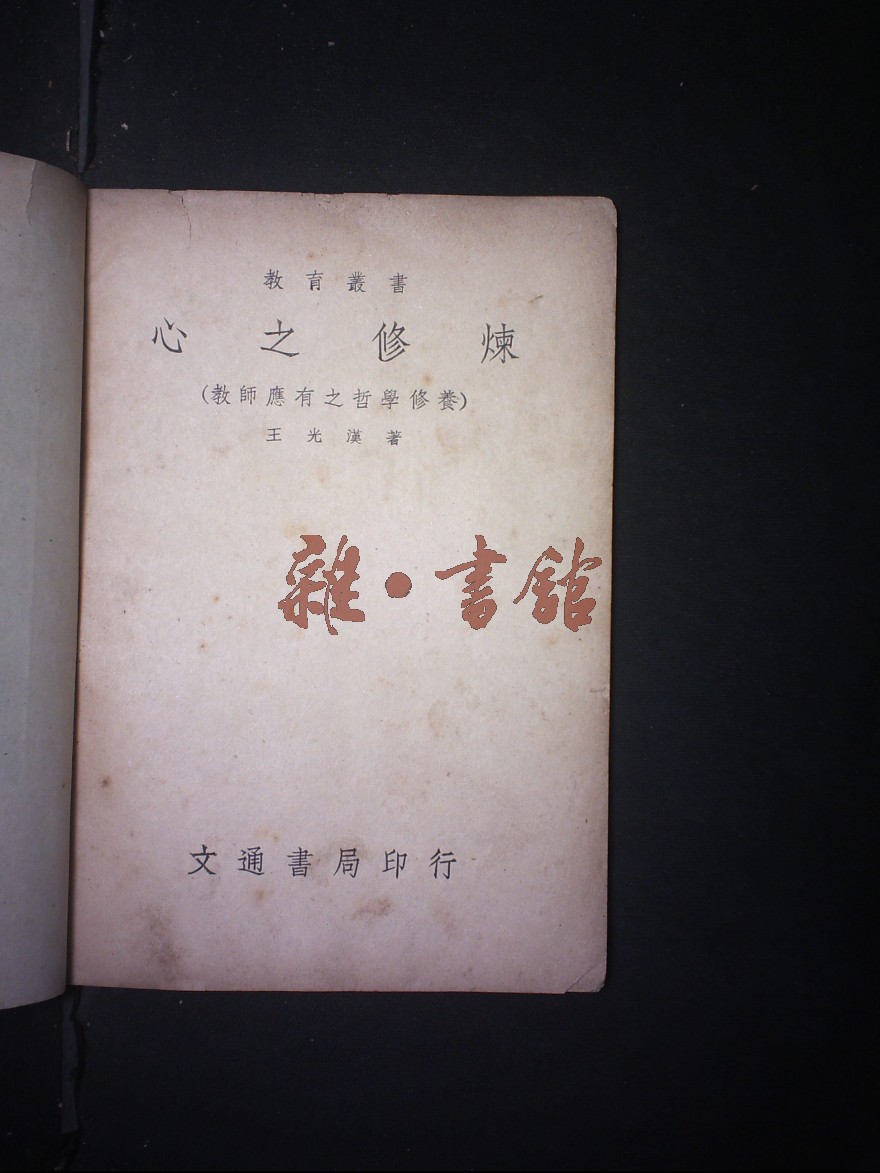 教育叢書
心之修煉
(教師應有之哲學修養)
王光漢著
雜·書館
文通書局印行